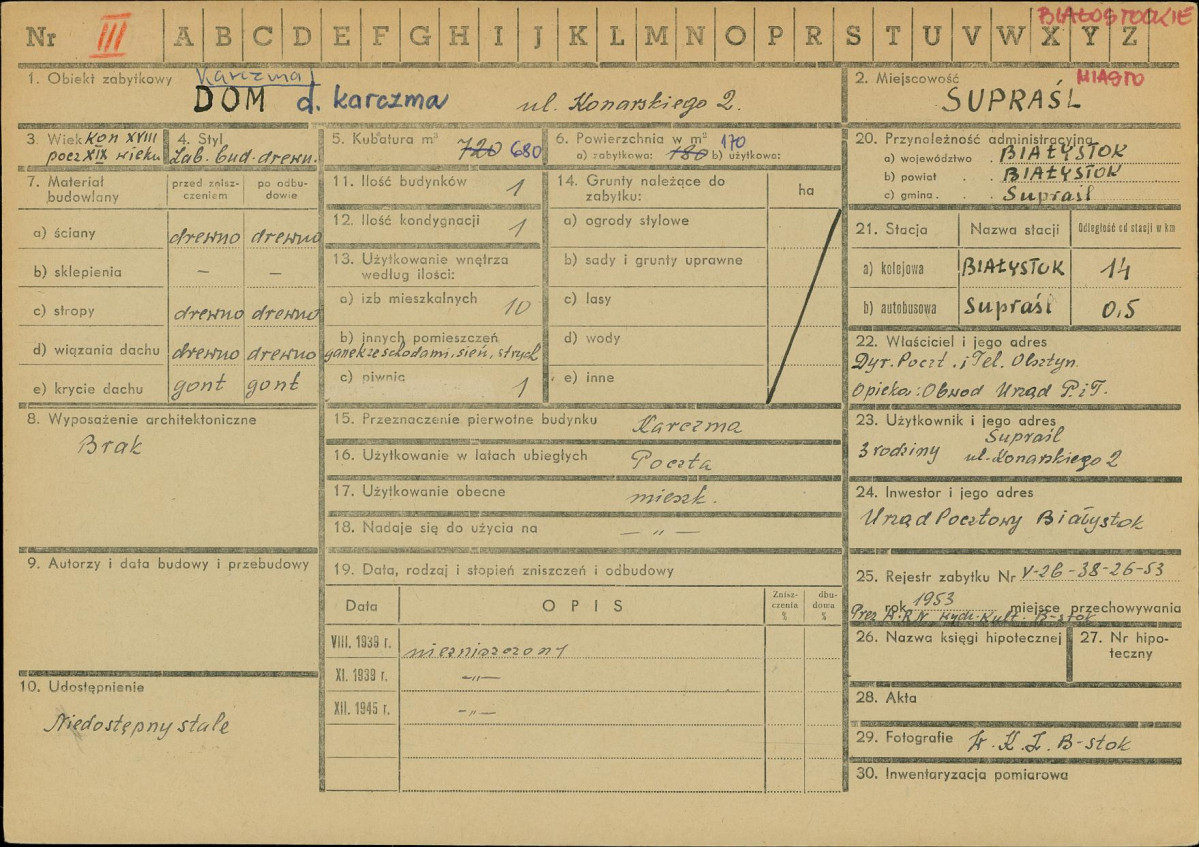 BIAŁOSTOCKIE
Nr III A B C D E F G H I J K L M N O P R S T U V W X Y Z
1. Obiekt zabytkowy
Karczma
DOM d. karczma ul. Konarskiego 2.
2. Miejscowość MIASTO
SUPRAŚL
3. Wiek kon XVIII
pocz XIX wieku
4. Styl
Zab. bud. drewn.
5. Kubatura m³ 720 680
6. Powierzchnia w m² 170
a) zabytkowa: 180 b) użytkowa:
7. Materiał budowlany
przed znisz-
czeniem
po odbu-
dowie
a) ściany drewno drewno
b) sklepienia — —
c) stropy drewno drewno
d) wiązania dachu drewno drewno
e) krycie dachu gont gont
8. Wyposażenie architektoniczne
Brak
9. Autorzy i data budowy i przebudowy
10. Udostępnienie
Niedostępny stale
11. Ilość budynków 1
12. Ilość kondygnacji 1
13. Użytkowanie wnętrza
według ilości:
a) izb mieszkalnych 10
b) innych pomieszczeń
ganek ze schodami, sień, strych
c) piwnic 1
14. Grunty należące do
zabytku:
ha
a) ogrody stylowe
b) sady i grunty uprawne
c) lasy
d) wody
e) inne
15. Przeznaczenie pierwotne budynku Karczma
16. Użytkowanie w latach ubiegłych Poczta
17. Użytkowanie obecne mieszk.
18. Nadaje się do użycia na — „ —
19. Data, rodzaj i stopień zniszczeń i odbudowy
Data OPIS
Znisz-
czenia
%
dbu-
dowa
%
VIII. 1939 r. niezniszczony
XI. 1939 r. -„-
XII. 1945 r. -„-
20. Przynależność administracyjna
a) województwo . BIAŁYSTOK
b) powiat . . BIAŁYSTOK
c) gmina . . . Supraśl
21. Stacja Nazwa stacji Odległość od stacji w km
a) kolejowa BIAŁYSTOK 14
b) autobusowa Supraśl 0,5
22. Właściciel i jego adres
Dyr. Poczt. i Tel. Olsztyn.
Opieka: Obwod Urząd P. i T.
23. Użytkownik i jego adres
Supraśl
3 rodziny ul. Konarskiego 2
24. Inwestor i jego adres
Urząd Pocztowy Białystok
25. Rejestr zabytku Nr V-26-38-26-53
rok 1953 miejsce przechowywania
Prez W.R.N Wydz. Kult. B-stok
26. Nazwa księgi hipotecznej
27. Nr hipo-
teczny
28. Akta
29. Fotografie W. K. Z. B-stok
30. Inwentaryzacja pomiarowa